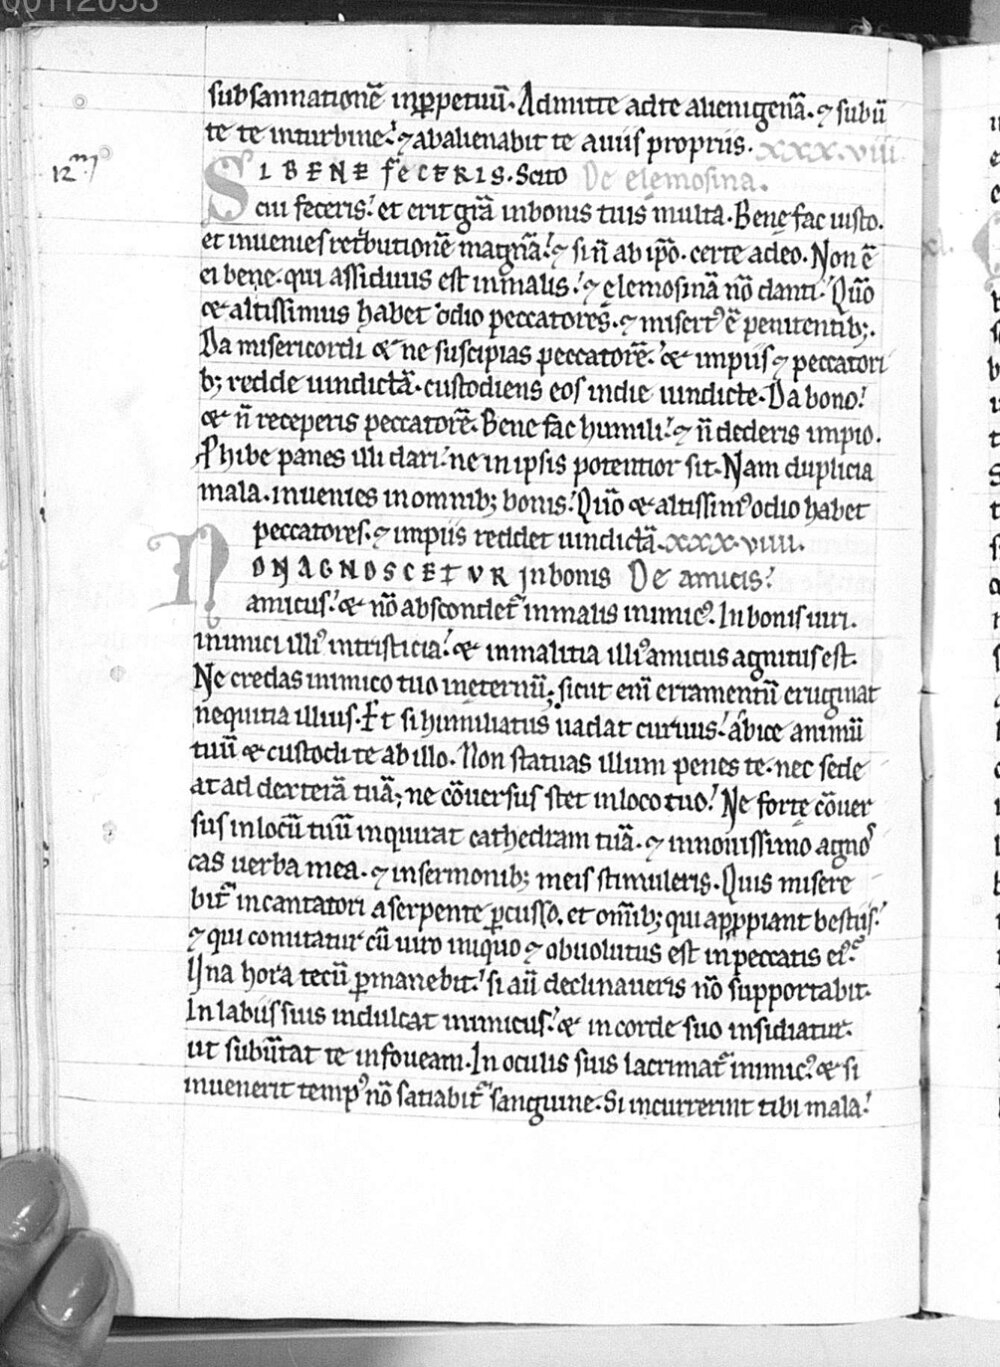 00112053
subsannationē inꝑpetuū. Admitte adte alienigenā. ⁊ subū
te te inturbine. ⁊ abalienabit te auiis propriis. xxx.viii
12.m
SI BENE feCERIS. Scito De elemosina.
cui feceris. et erit grā inbonis tuis multa. Bene fac iusto.
et inuenies ret'butionē magnā. ⁊ si ñ ab ip̄o. certe adeo. Non ē
ei bene. qui assiduus est inmalis. ⁊ elemosinā nō danti. Quō
& altissimus habet odio peccatores. ⁊ misert' ē penitentib;.
Da misericordi & ne suscipias peccatorē. & impiis ⁊ peccatori
b; redde uindictā. custodiens eos indie uindicte. Da bono.
& ñ receperis peccatorē. Bene fac humili. ⁊ ñ dederis impio.
Phibe panes illi dari. ne in ipsis potentior sit. Nam duplicia
mala. inuenies in omnib; bonis. Quō & altissim' odio habet
peccatores. ⁊ impiis reddet uindictā. xxx.viiii.
NON AGNOSCETVR inbonis De amicis.
amicus. & nō abscondet' inmalis inimic'. In bonis uiri.
inimici illi' intristicia. & inmalitia illi' amicus agnitus est.
Ne credas inimico tuo ineternū; sicut enī erramentū eruginat
nequitia illius. Et si humiliatus uadat curuus. abice animū
tuū & custodi te ab illo. Non statuas illum penes te. nec sede
at ad dexterā tuā; ne cōuersus stet inloco tuo. Ne forte cōuer
sus inlocū tuū inquirat cathedram tuā. ⁊ innouissimo agnos
cas uerba mea. ⁊ insermonib; meis stimuleris. Quis misere
bit' incantatori aserpente ꝑcusso. et om̄ib; qui apꝓpiant bestiis.
⁊ qui comitatur cū uiro iniquo ⁊ obuolutus est inpeccatis ei'.
Una hora tecū ꝑmanebit. si aū declinaueris nō supportabit.
In labiis suis indulcat inimicus. & incorde suo insidiatur.
ut subūtat te infoueam. In oculis suis lacrimat' inimic'. & si
inuenerit temp' nō satiabit' sanguine. Si incurrerint tibi mala.